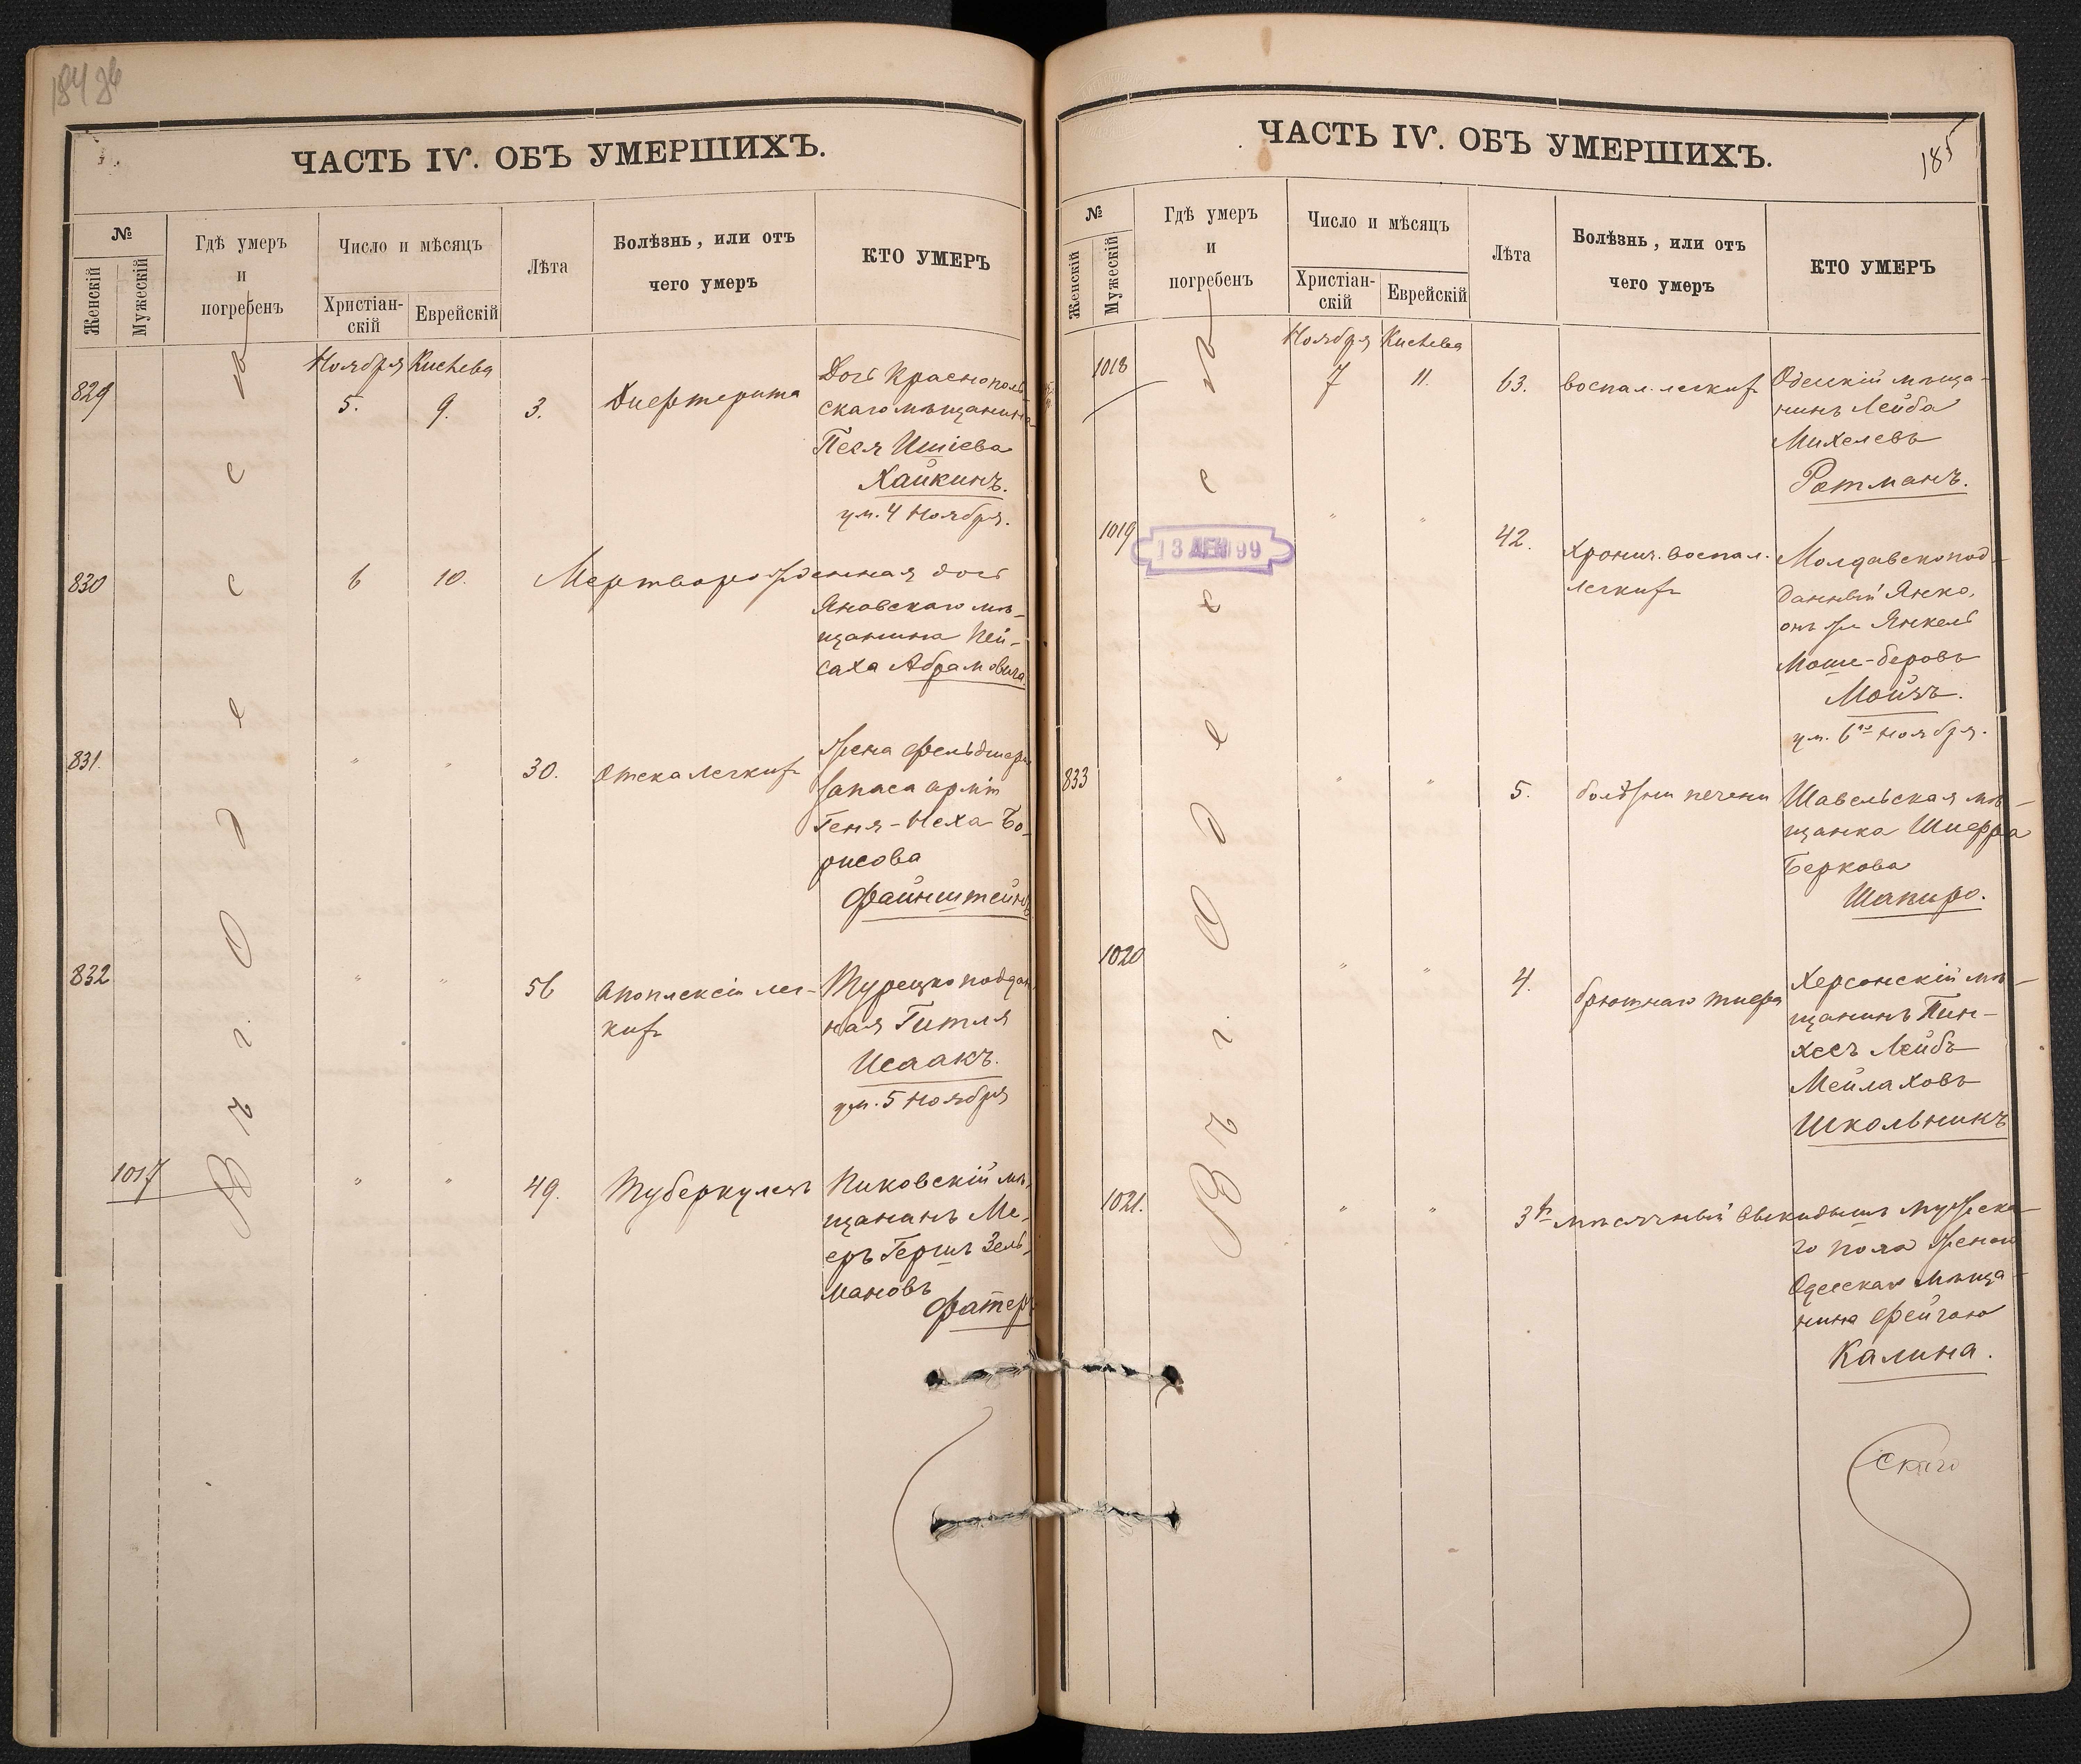 184 об
ЧАСТЬ IV. ОБЪ УМЕРШИХЪ.
№
Женскій
Мужескій
Гдѣ умеръ
и
погребенъ
Число и мѣсяцъ
Христіан-
скій
Еврейскій
Лѣта
Болѣзнь, или отъ
чего умеръ
КТО УМЕРЪ
Въ г. Одессѣ
Ноября Кислева
829 5. 9. 3. Дифтерита
Дочь Краснополь-
скаго мѣщанина
Песя Ишіева
Хайкинъ.
ум. 4 Ноября.
830 6 10. Мертворожденная дочь
Яновскаго мѣ-
щанина Пей-
саха Абрамовича.
831. " " 30. Отека легкихъ
Жена фельдшера
запаса арміи
Геня-Неха Бо-
рисова
Файнштейнъ
832 " " 56 Апоплексіи лег-
кихъ
Турецкоподдан
ная Гитля
Исаакъ.
ум. 5 Ноября
1017 " " 49. Туберкулезъ
Пиковскій мѣ-
щанинъ Ме-
еръ Гершъ Зель-
мановъ
Фатеръ
185
ЧАСТЬ IV. ОБЪ УМЕРШИХЪ.
№
Женскій
Мужескій
Гдѣ умеръ
и
погребенъ
Число и мѣсяцъ
Христіан-
скій
Еврейскій
Лѣта
Болѣзнь, или отъ
чего умеръ
КТО УМЕРЪ
Въ г. Одессѣ
Ноября Кислева
1018 7 11. 63. воспал. легкихъ
Одесскій мѣща-
нинъ Лейба
Михелевъ
Ротманъ.
13 ДЕК 99
1019 " " 42. Хронич. воспал.
легкихъ
Молдавскопод-
данный Янко,
онъ же Янкель
Моше-беровъ
Мойзъ.
ум. 6го ноября.
833 " " 5. болѣзни печени
Шавельская мѣ-
щанка Шифра
Беркова
Шапиро.
1020 " " 4. брюшнаго тифа
Херсонскій мѣ-
щанинъ Пин-
хесъ Лейбъ
Мейлаховъ
Школьникъ
1021. " " 3хъ мѣсячный выкидышъ мужска-
го пола женой
Одесскаго мѣща-
нина Фейгою
Калина.
скаго